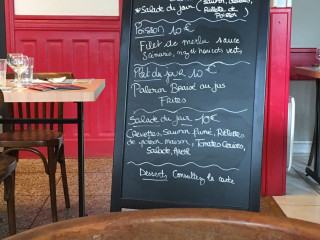 Salade du jour (saumon,
Rillette de
Poisson)
Poisson 10€
Filet de merlu sauce
riz et haricots verts
Plat du jour 10€
Paleron Braisé au jus
Frites
Salade du jour 10€
Crevettes, Saumon fumé, Rillettes
de poisson maison, Tomates Cerises,
Salade,
Desserts Consultez la carte